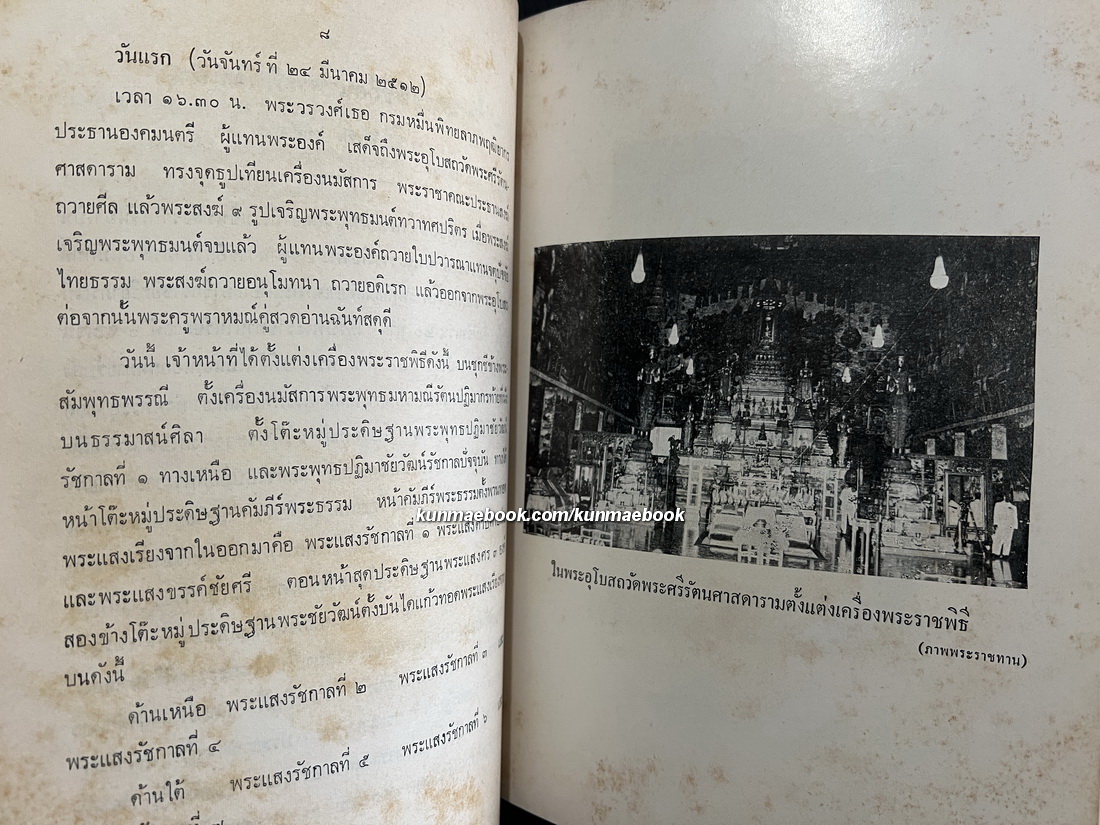 ๘
วันแรก (วันจันทร์ ที่ ๒๔ มีนาคม ๒๕๑๒)
เวลา ๑๖.๓๐ น. พระวรวงศ์เธอ กรมหมื่นพิทยลาภพฤฒิยากร
ประธานองคมนตรี ผู้แทนพระองค์ เสด็จถึงพระอุโบสถวัดพระศรีรัตน-
ศาสดาราม ทรงจุดธูปเทียนเครื่องนมัสการ พระราชาคณะประธานสงฆ์
ถวายศีล แล้วพระสงฆ์ ๙ รูปเจริญพระพุทธมนต์ทวาทศปริตร เมื่อพระสงฆ์
เจริญพระพุทธมนต์จบแล้ว ผู้แทนพระองค์ถวายใบปวารณาแทนจตุปัจจัย
ไทยธรรม พระสงฆ์ถวายอนุโมทนา ถวายอดิเรก แล้วออกจากพระอุโบสถ
ต่อจากนั้นพระครูพราหมณ์คู่สวดอ่านฉันท์สดุดี
วันนี้ เจ้าหน้าที่ได้ตั้งแต่งเครื่องพระราชพิธีดังนี้ บนชุกชีข้างพระ
สัมพุทธพรรณี ตั้งเครื่องนมัสการพระพุทธมหามณีรัตนปฏิมากรท้ายที่นั่ง
บนธรรมาสน์ศิลา ตั้งโต๊ะหมู่ประดิษฐานพระพุทธปฏิมาชัยวัฒน์
รัชกาลที่ ๑ ทางเหนือ และพระพุทธปฏิมาชัยวัฒน์รัชกาลปัจจุบัน ทางใต้
หน้าโต๊ะหมู่ประดิษฐานคัมภีร์พระธรรม หน้าคัมภีร์พระธรรมตั้งพาน
พระแสงเรียงจากในออกมาคือ พระแสงรัชกาลที่ ๑
และพระแสงขรรค์ชัยศรี ตอนหน้าสุดประดิษฐานพระแสงศร ๓
สองข้างโต๊ะหมู่ประดิษฐานพระชัยวัฒน์ตั้งบันไดแก้วทอดพระแสง
บนดังนี้
ด้านเหนือ พระแสงรัชกาลที่ ๒ พระแสงรัชกาลที่ ๓
พระแสงรัชกาลที่ ๔
ด้านใต้ พระแสงรัชกาลที่ ๕ พระแสงรัชกาลที่ ๖
ในพระอุโบสถวัดพระศรีรัตนศาสดารามตั้งแต่งเครื่องพระราชพิธี
(ภาพพระราชทาน)
kunmaebook.com/kunmaebook